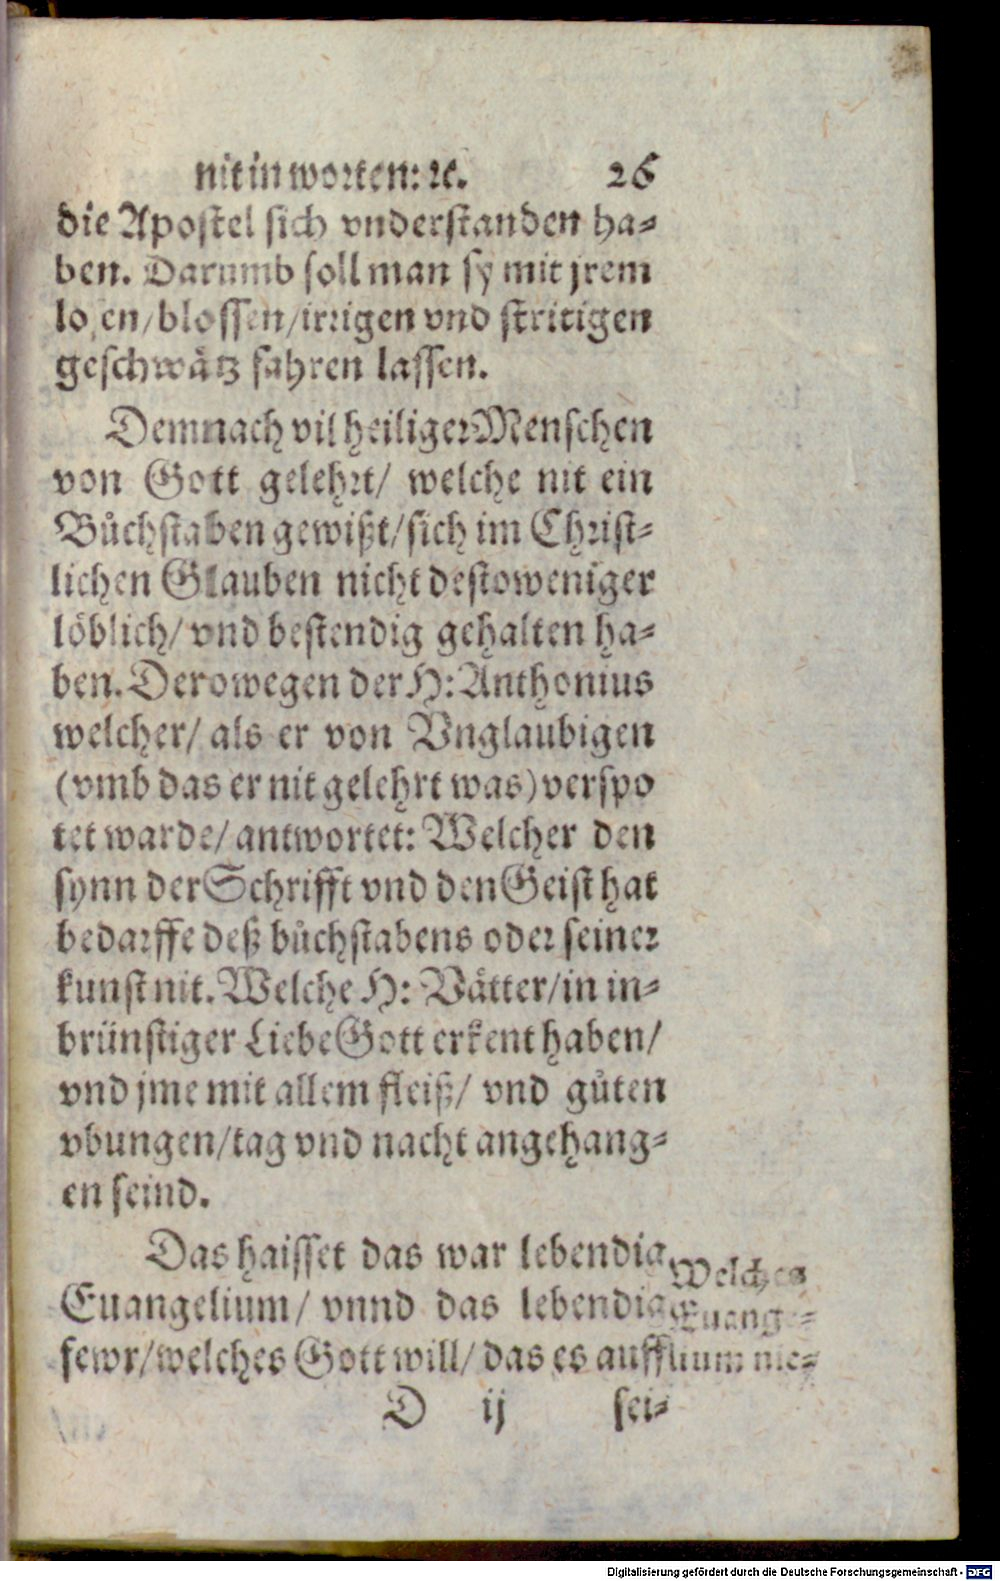 nit in worten: ꝛc. 26
die Apostel sich vnderstanden ha-
ben. Darumb soll man sy mit jrem
losen/blossen/irrigen vnd stritigen
geschwätz fahren lassen.
Demnach vil heiliger Menschen
von Gott gelehrt/ welche nit ein
Bůchstaben gewißt/sich im Christ-
lichen Glauben nicht destoweniger
löblich/ vnd bestendig gehalten ha-
ben. Derowegen der H: Anthonius
welcher/ als er von Vnglaubigen
(vmb das er nit gelehrt was) verspo
tet warde/ antwortet: Welcher den
synn der Schrifft vnd den Geist hat
bedarffe deß bůchstabens oder seiner
kunst nit. Welche H: Vätter/in in-
brünstiger Liebe Gott erkent haben/
vnd jme mit allem fleiß/ vnd gůten
vbungen/tag vnd nacht angehang-
en seind.
Das haisset das war lebendig
Euangelium/ vnnd das lebendig
fewr/welches Gott will/ das es auff
Welches
Euange-
lium me-
D ij sei-
Digitalisierung gefördert durch die Deutsche Forschungsgemeinschaft - DFG